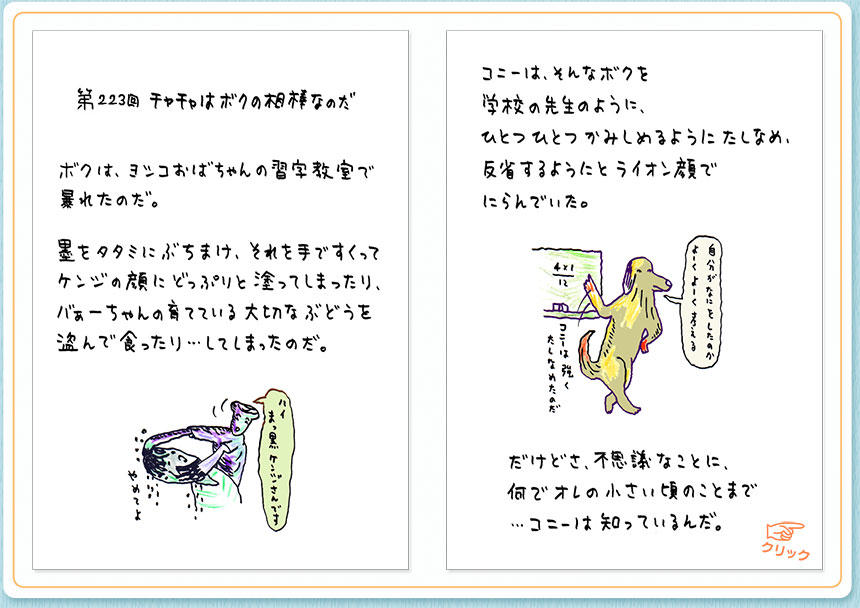 第223回 チャチャはボクの相棒なのだ
ボクは、ヨシコおばちゃんの習字教室で
暴れたのだ。
墨をタタミにぶちまけ、それを手ですくって
ケンジの顔にどっぷりと塗ってしまったり、
バぁーちゃんの育てている大切なぶどうを
盗んで食ったり…してしまったのだ。
ハイ
まっ黒ケンジさんです
やめてよ
コニーは、そんなボクを
学校の先生のように、
ひとつひとつかみしめるようにたしなめ、
反省するようにとライオン顔で
にらんでいた。
自分がなにをしたのか
よーくよーく考える
4×1
12
コニーは強く
たしなめたのだ
だけどさ、不思議なことに、
何でオレの小さい頃のことまで
…コニーは知っているんだ。
クリック